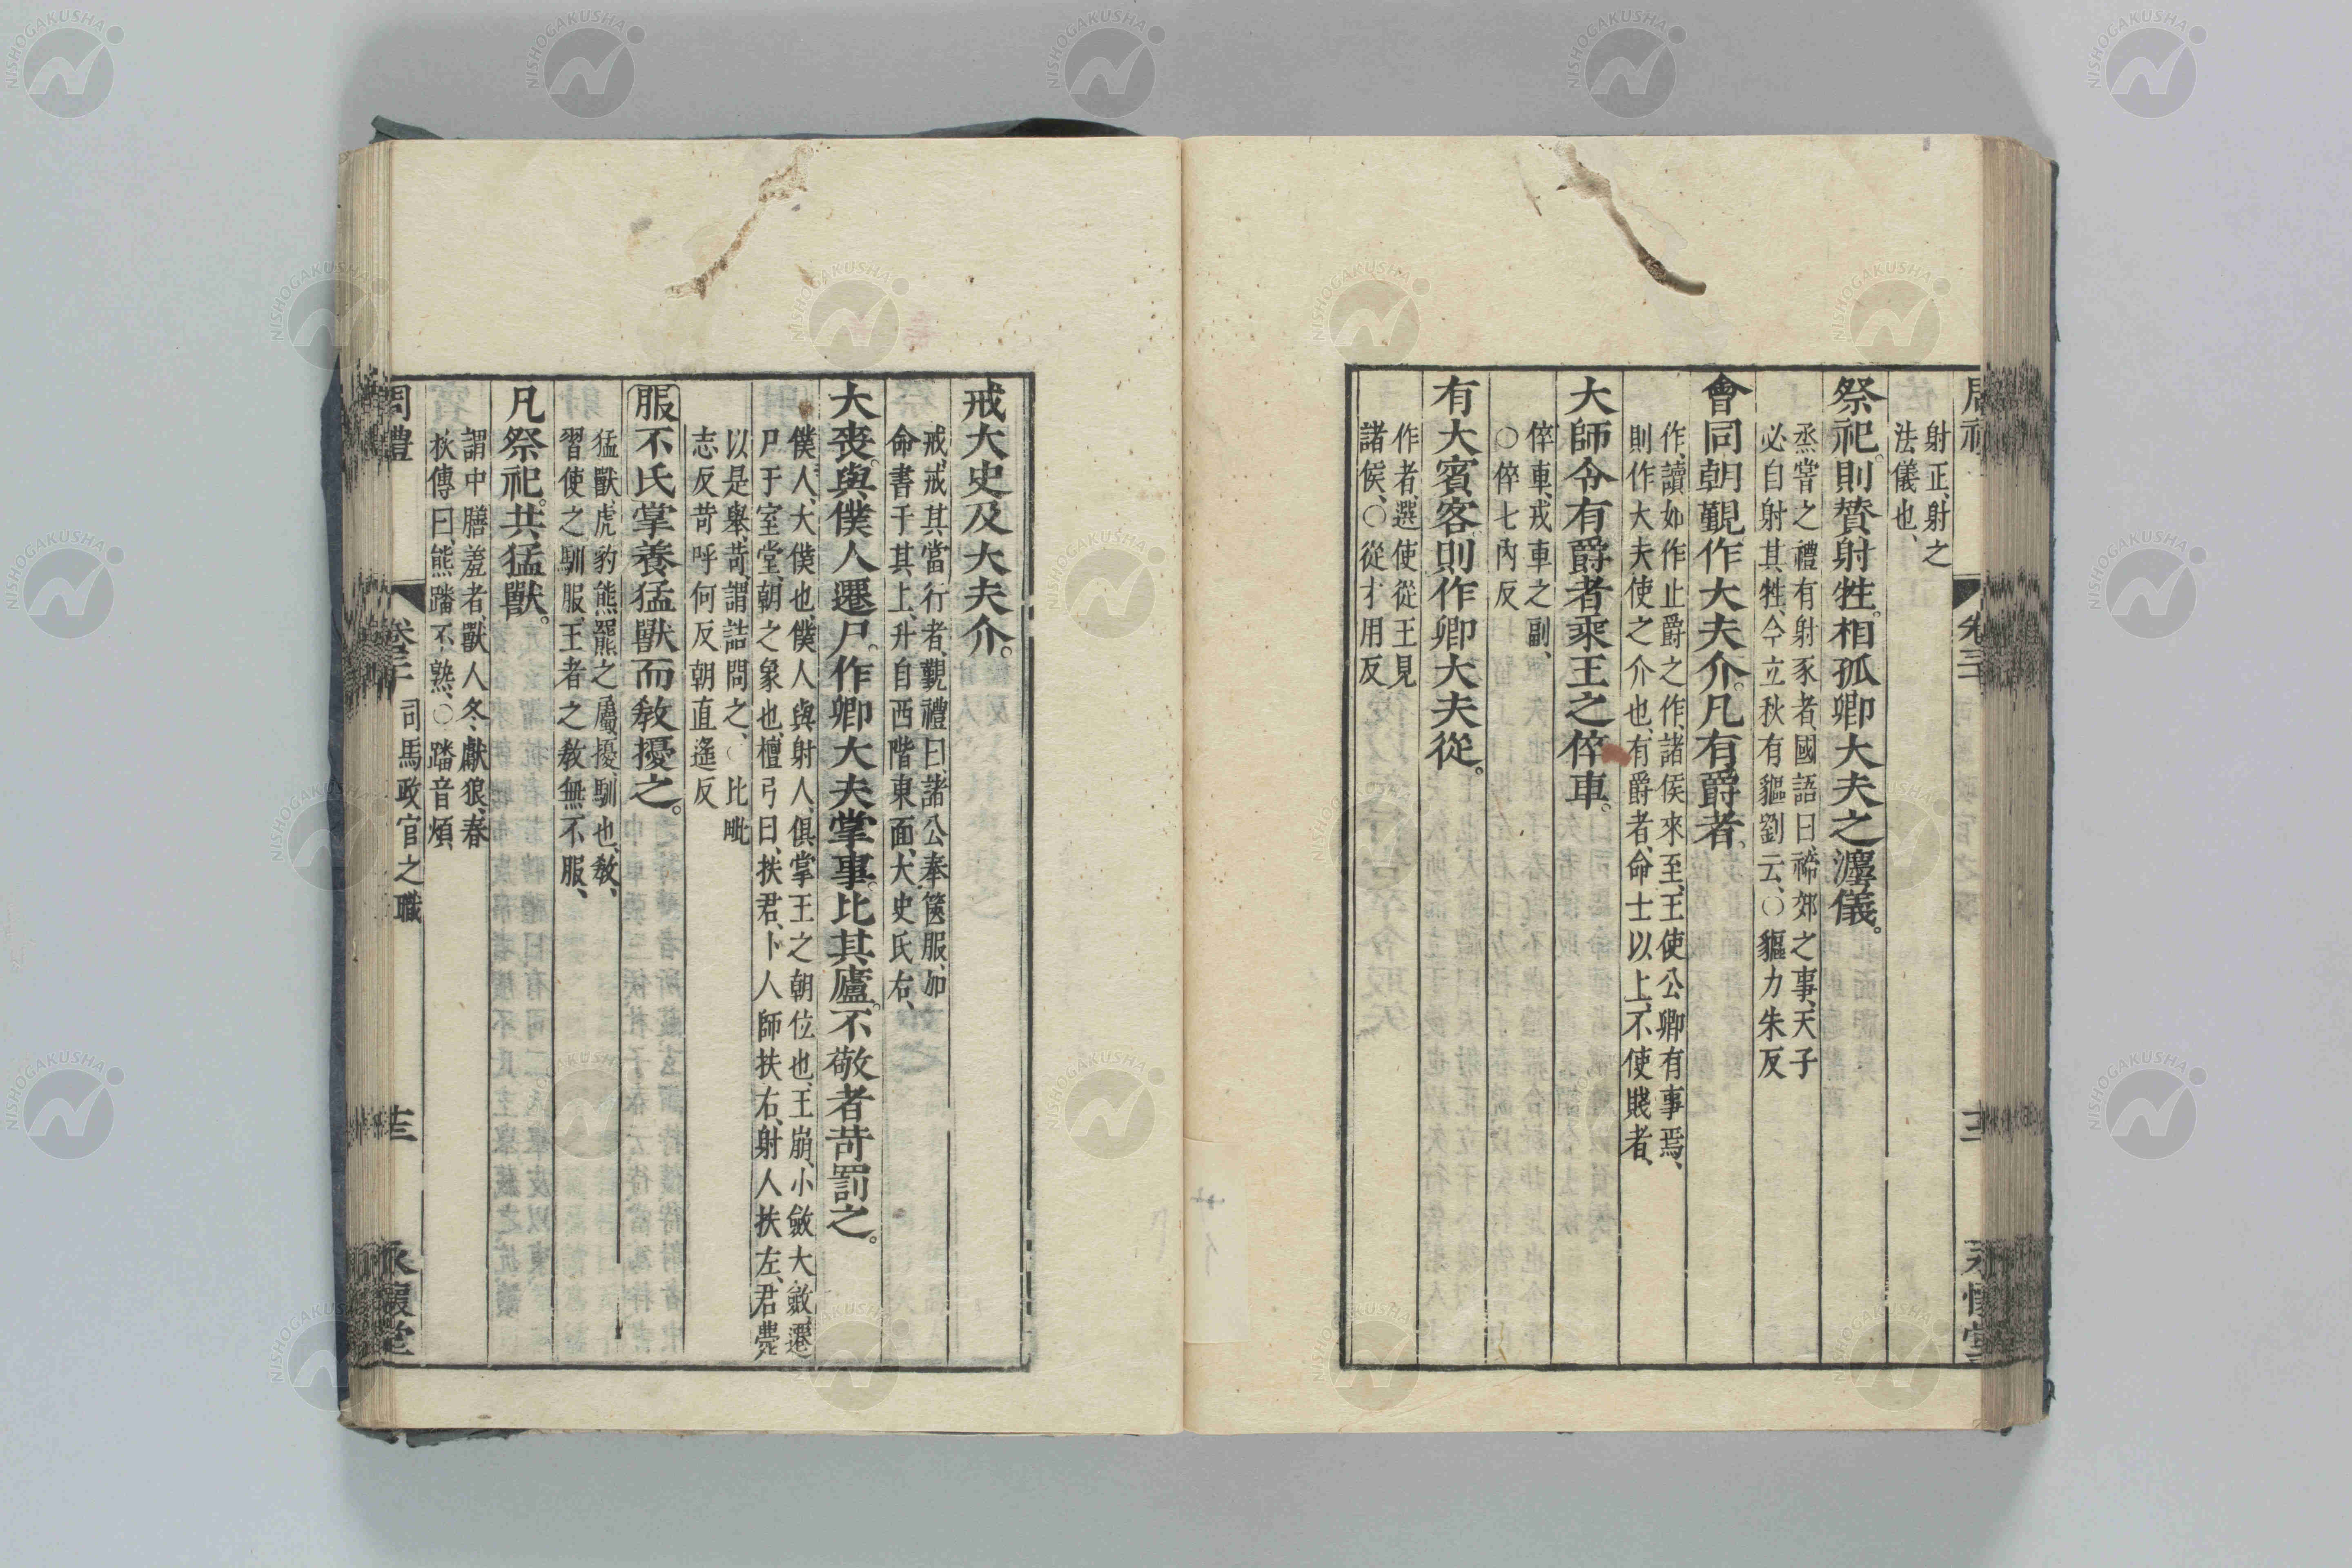 射正、射之
法儀也、
祭祀。則贊射牲。相孤卿大夫之灋儀。
烝甞之禮有射豕者、國語曰、禘郊之事、天子
必自射其牲、今立秋有貙劉云、○貙力朱反
會同朝覲。作大夫介。凡有爵者。
作、讀如作止爵之作、諸侯來至、王使公卿有事焉、
則作大夫使之介也、有爵者、命士以上、不使賤者、
大師令有爵者乘王之倅車。
倅車、戎車之副、
○倅七內反
有大賓客則作卿大夫從。
作者、選使從王見
諸侯、○從才用反
戒大史及大夫介。
戒、戒其當行者、覲禮曰、諸公奉篋服、加
命書于其上、升自西階東面、大史氏右、
大喪。與僕人遷尸。作卿大夫掌事。比其廬。不敬者苛罰之。
僕人、大僕也、僕人與射人、俱掌王之朝位也、王崩、小斂大斂、遷
尸于室堂、朝之象也、檀弓曰、扶君、卜人師扶右、射人扶左、君薨
以是舉、苛、謂詰問之、○比毗
志反苛呼何反朝直遙反
服不氏掌養猛獸而敎擾之。
猛獸、虎豹熊羆之屬、擾、馴也、敎、
習使之馴服、王者之敎無不服、
凡祭祀。共猛獸。
謂中膳羞者、獸人冬獻狼、春
秋傳曰、熊蹯不熟、○蹯音煩
周禮 卷三十 司馬政官之職
永懷堂